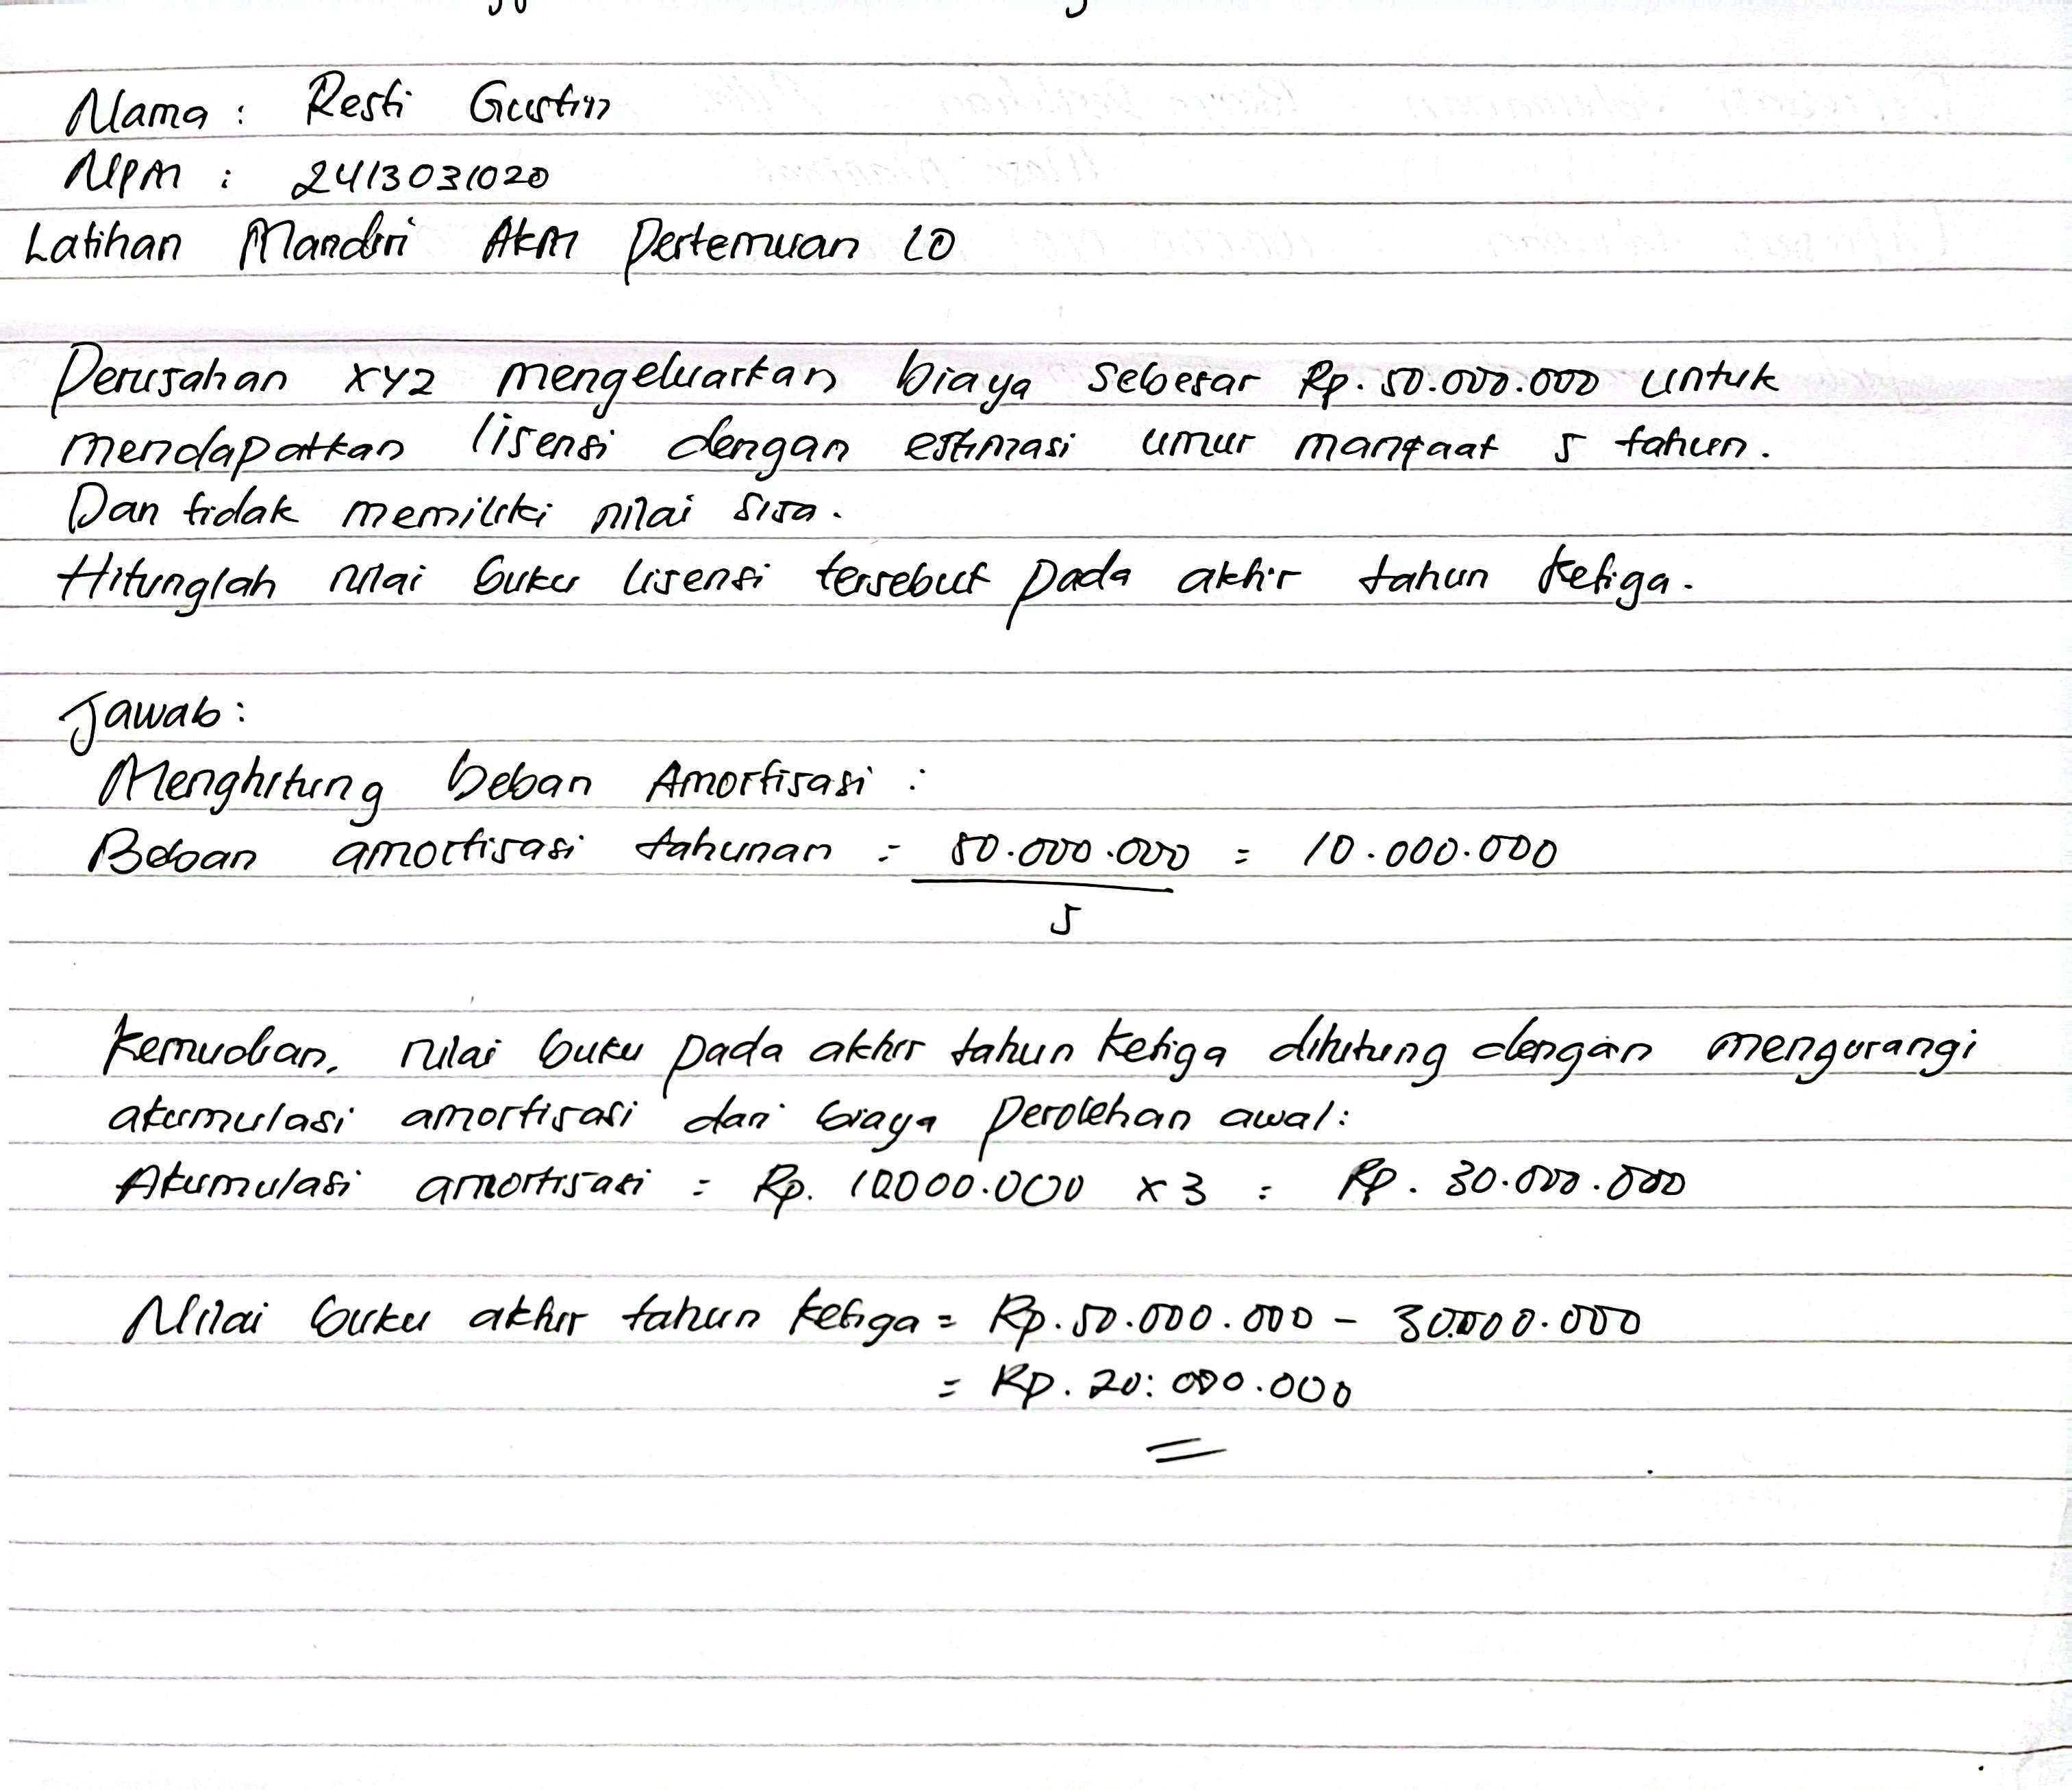 Nama : Resti Gustin
NPM : 2413031020
Latihan Mandiri AKM Pertemuan 10
Perusahan XYZ mengeluarkan biaya sebesar Rp. 50.000.000 untuk
mendapatkan lisensi dengan estimasi umur manfaat 5 tahun.
Dan tidak memiliki nilai sisa.
Hitunglah nilai buku lisensi tersebut pada akhir tahun ketiga.
Jawab:
Menghitung beban Amortisasi :
Beban amortisasi tahunan = 50.000.000 = 10.000.000
5
Kemudian, nilai buku pada akhir tahun ketiga dihitung dengan mengurangi
akumulasi amortisasi dari biaya perolehan awal:
Akumulasi amortisasi = Rp. 10.000.000 x 3 = Rp. 30.000.000
Nilai buku akhir tahun ketiga = Rp. 50.000.000 - 30.000.000
= Rp. 20.000.000